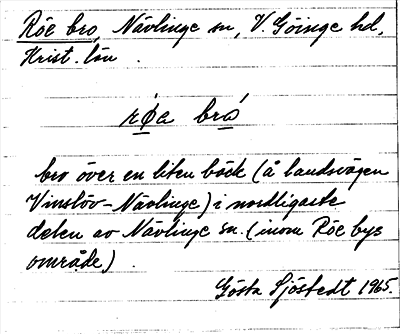 Röe bro, Nävlinge sn, V. Göinge hd,
Krist. län.
røa bro
bro över en liten bäck (å landsvägen
Vinslöv-Nävlinge) i nordligaste
delen av Nävlinge sn. (inom Röe bys
område).
Gösta Sjöstedt 1965.